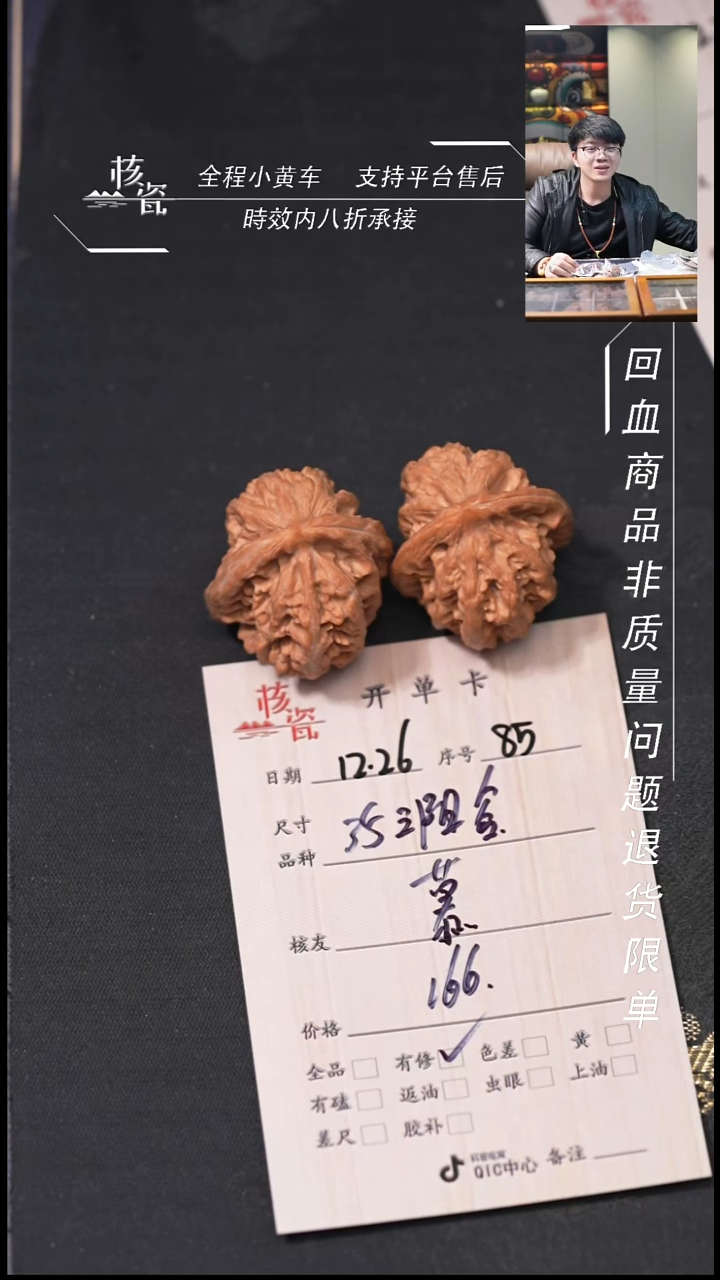 核瓷
全程小黄车 支持平台售后
時效内八折承接
回血商品非质量问题退货限单
核瓷 开单卡
日期 12.26 序号 85
尺寸
品种 35三阴盒
核友 慕
价格 166.
全品 有修 色差 黄
有磕 返油 虫眼 上油
差尺 胶补
QIC中心 备注